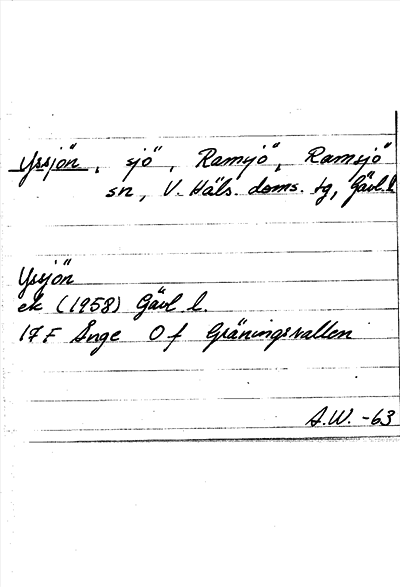 Yssjön, sjö, Ramsjö, Ramsjö
sn, V. Häls. doms. tg, Gävl. l
Yssjön
ek (1958) Gävl l.
17F Ånge 0 f Gräningsvallen
A.W. -63